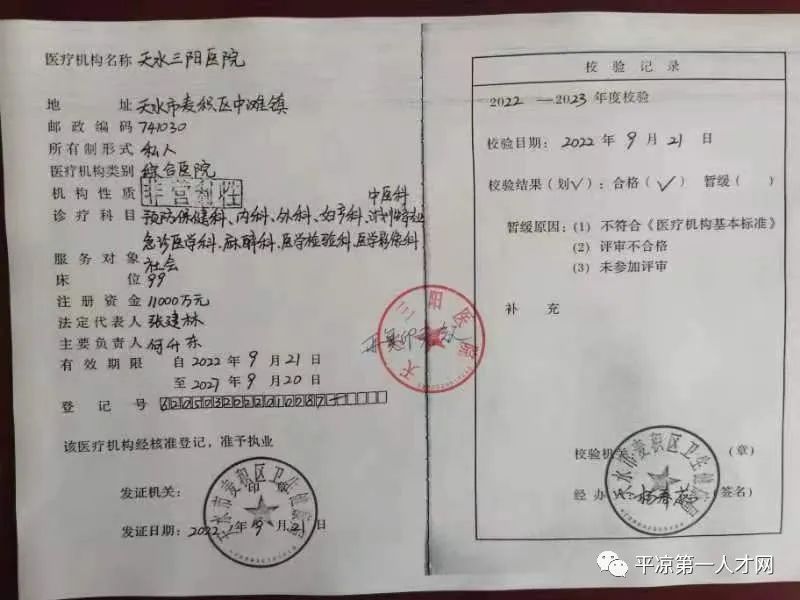 医疗机构名称 天水三阳医院
地 址 天水市麦积区中滩镇
邮政编码 741030
所有制形式 私人
医疗机构类别 综合医院
机构性质 非营利性
中医科
诊疗科目 预防保健科、内科、外科、妇产科、
急诊医学科、麻醉科、医学检验科、医学影像科
服务对象 社会
床 位 99
注册资金 11000万元
法定代表人 张建林
主要负责人 何升东
有效期限 自 2022 年 9 月 21 日
至 2027 年 9 月 20 日
登 记 号
该医疗机构经核准登记，准予执业
发证机关：
印章
发证日期：2022 年 9 月 21 日
天水市麦积区卫生健康局
三阳医院
再复印无效
校 验 记 录
2022 —2023 年度校验
校验日期：2022 年 9 月 21 日
校验结果（划√）：合格（√） 暂缓（ ）
暂缓原因：(1) 不符合《医疗机构基本标准》
(2) 评审不合格
(3) 未参加评审
补 充
校验机关 （章）
经 办 人： （签名）
天水市麦积区卫生健康局
平凉第一人才网